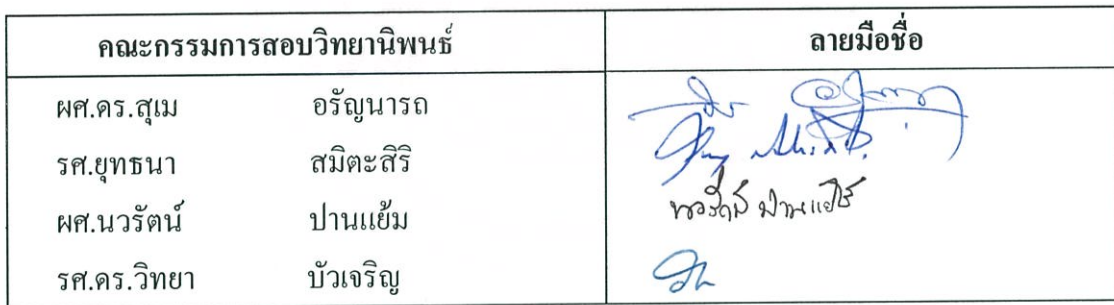 คณะกรรมการสอบวิทยานิพนธ์ ลายมือชื่อ
ผศ.ดร.สุเม อรัญนารถ
รศ.ยุทธนา สมิตะสิริ
ผศ.นวรัตน์ ปานแย้ม นวรัตน์ ปานแย้ม
รศ.ดร.วิทยา บัวเจริญ